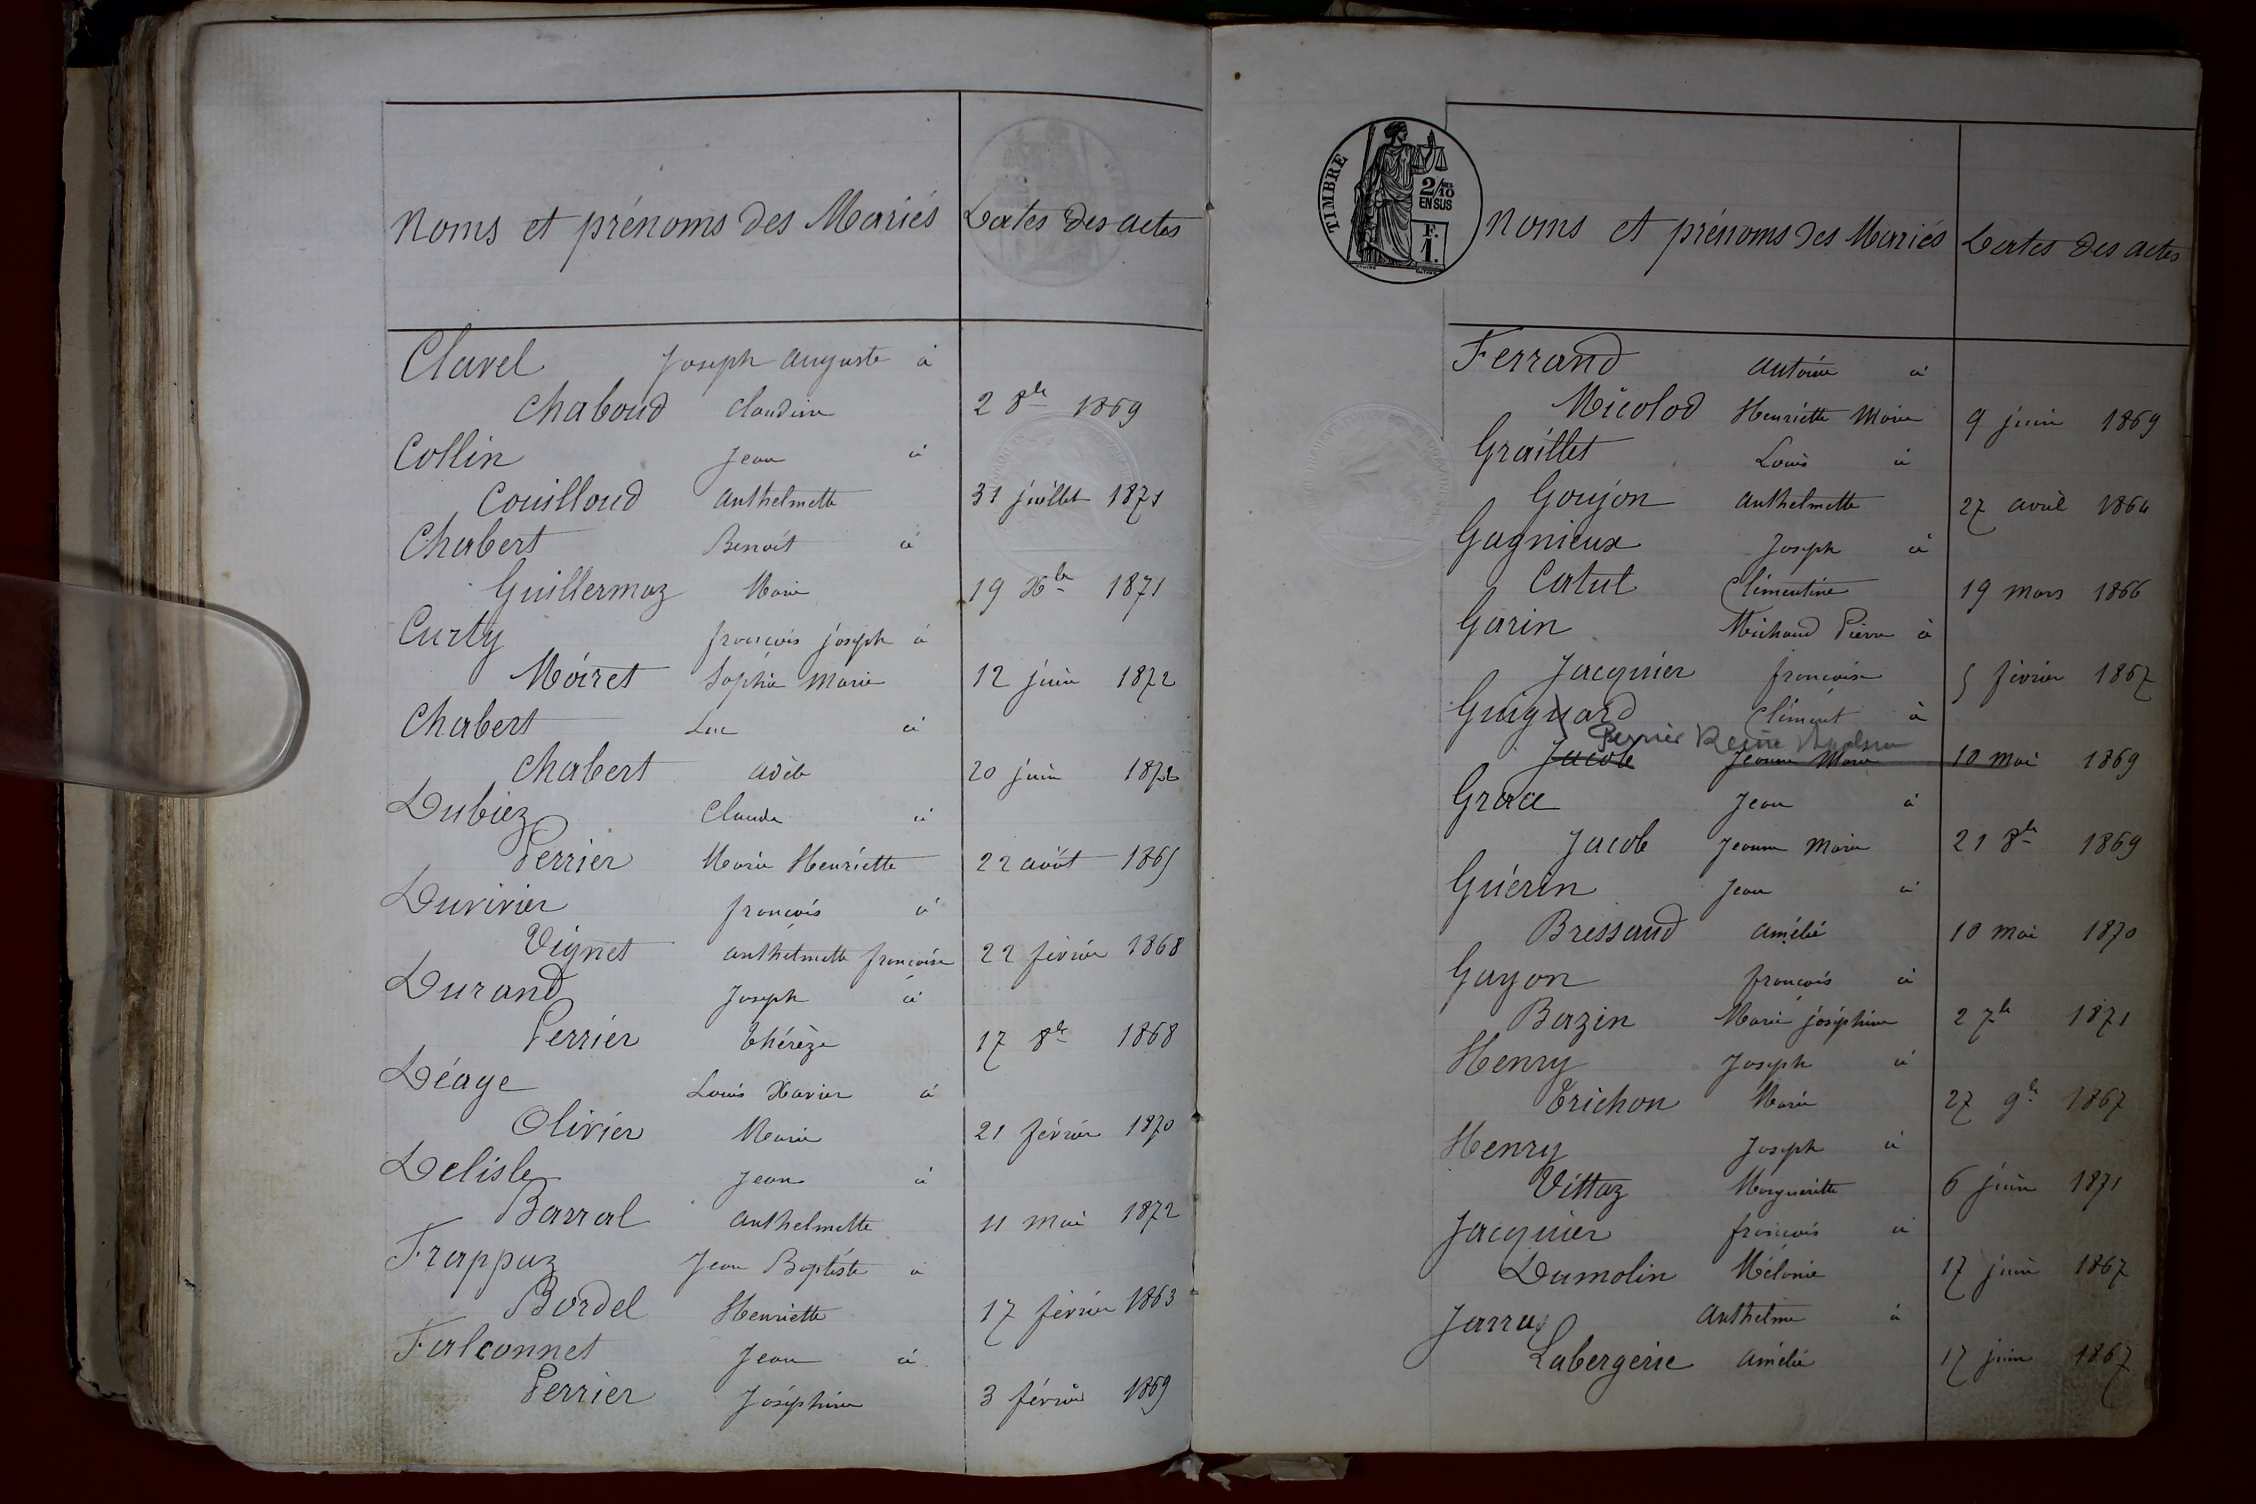 Noms et prénoms des Mariés Dates des actes
Clavel Joseph Auguste à
Chaboud Claudine 2 8bre 1869
Collin Jean à
Couilloud Anthelmette 31 juillet 1871
Chabert Benoit à
Guillermaz Marie 19 Xbre 1871
Curty françois joseph à
Moiret Sophie Marie 12 juin 1872
Chabert Luc à
Chabert Adèle 20 juin 1872
Dubiez Claude à
Perrier Marie Henriette 22 août 1865
Duvivier françois à
Vignet Anthelmette françoise 22 février 1868
Durand Joseph à
Perrier Thérèze 17 8bre 1868
Déage Louis Xavier à
Olivier Marie 21 février 1870
Delisle Jean à
Barral Anthelmette 11 Mai 1872
Frappaz Jean Baptiste à
Bordel Henriette 17 février 1863
Falconnet Jean à
Perrier Joséphine 3 février 1869
TIMBRE
2/10 EN SUS
F. 1.
Noms et prénoms des Mariés Dates des actes
Ferrand Antoine à
Micolod Henriette Marie 9 juin 1869
Graillet Louis à
Goujon Anthelmette 27 avril 1864
Gagnieux Joseph à
Catut Clémentine 19 mars 1866
Garin Michaud Pierre à
Jacquier françoise 5 février 1867
Guignard Clément à
Perrier Reine
Jacob Jeanne Marie 10 mai 1869
Grace Jean à
Jacob Jeanne Marie 21 8bre 1869
Guérin Jean à
Bressaud Amélie 10 mai 1870
Gayon françois à
Bazin Marie joséphine 2 7bre 1871
Henry Joseph à
Trichon Marie 27 9bre 1867
Henry Joseph à
Vittaz Marguerite 6 juin 1871
Jacquier françois à
Dumolin Mélanie 17 juin 1867
Jarray Anthelme à
Labergerie Amélie 17 juin 1867